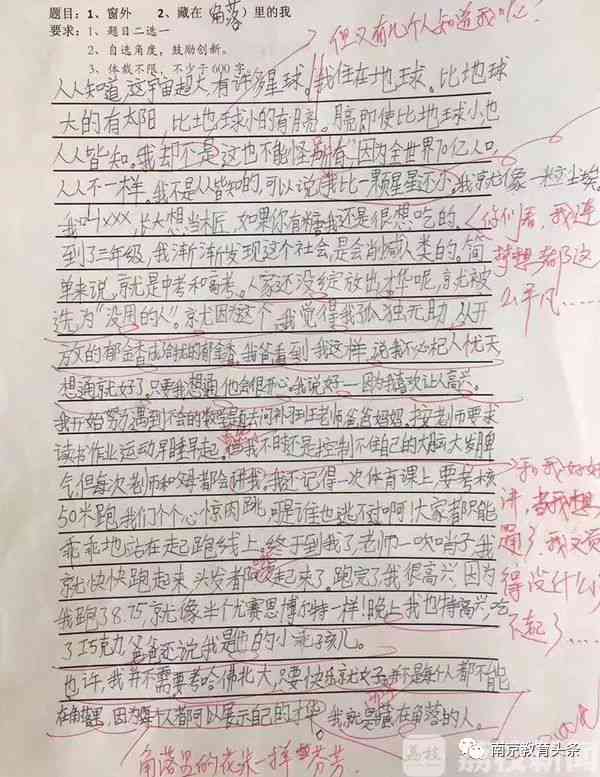 题目:1、窗外 2、藏在(角落)里的我
要求:1、题目二选一
2、自选角度,鼓励创新。
3、体裁不限,不少于600字
但又有几个人知道我呢?
人人知道,这宇宙超大,有许多星球。我住在地球。比地球
大的有太阳,比地球小的有月亮。月亮即使比地球小,也
人人皆知。我却不是,这也不能怪别人,因为全世界70亿人口,
人人不一样。我不是人皆知的,可以说我比一颗星星还小,我就像一粒尘埃。
我叫xxx,长大想当木匠,如果你有糖,我还是很想吃的。
到了三年级,我渐渐发现这个社会,是会消灭人类的。简
单来说,就是中考和高考。人家还没绽放出才华呢,就被
选为“没用的人”。就因为这个,我觉得我孤独无助,从开
放的
爸爸看到我这样,说我不必杞人忧天,
想通就好了。只要我想通,他会很开心。我说好——因为我喜欢让人高兴。
我开始努力,遇到不会的数学题去问补习班老师、爸爸妈妈。按老师要求
读书作业运动早睡早起。但我不时还是控制不住自己的大脑大发脾
气,但每次老师和父母都会讲我。我还记得一次体育课上,要考核
50米跑,我们个个心惊肉跳,可是谁也逃不过啊!大家都只能
乖乖地站在起跑线上。终于到我了,老师一吹哨子,我
就快快跑起来,头发都起来了。跑完了,我很高兴,因为
我跑了8.75,就像半个尤赛恩博尔特一样!晚上,我也特高兴,吃
了巧克力,爸爸还说我是他的小乖孩儿。
也许,我并不需要考哈佛北大,只要快乐就好,并不是每个人都不能
在角落里,因为每个人都可以展示自己的才华。我就是藏在角落的人。
你们看,我连
梦想都这
么平凡……
和我好好
讲,当我想
通了,我又觉
得没什么
不起了……
角落里的花朵一样芬芳
荔枝新闻
南京教育头条